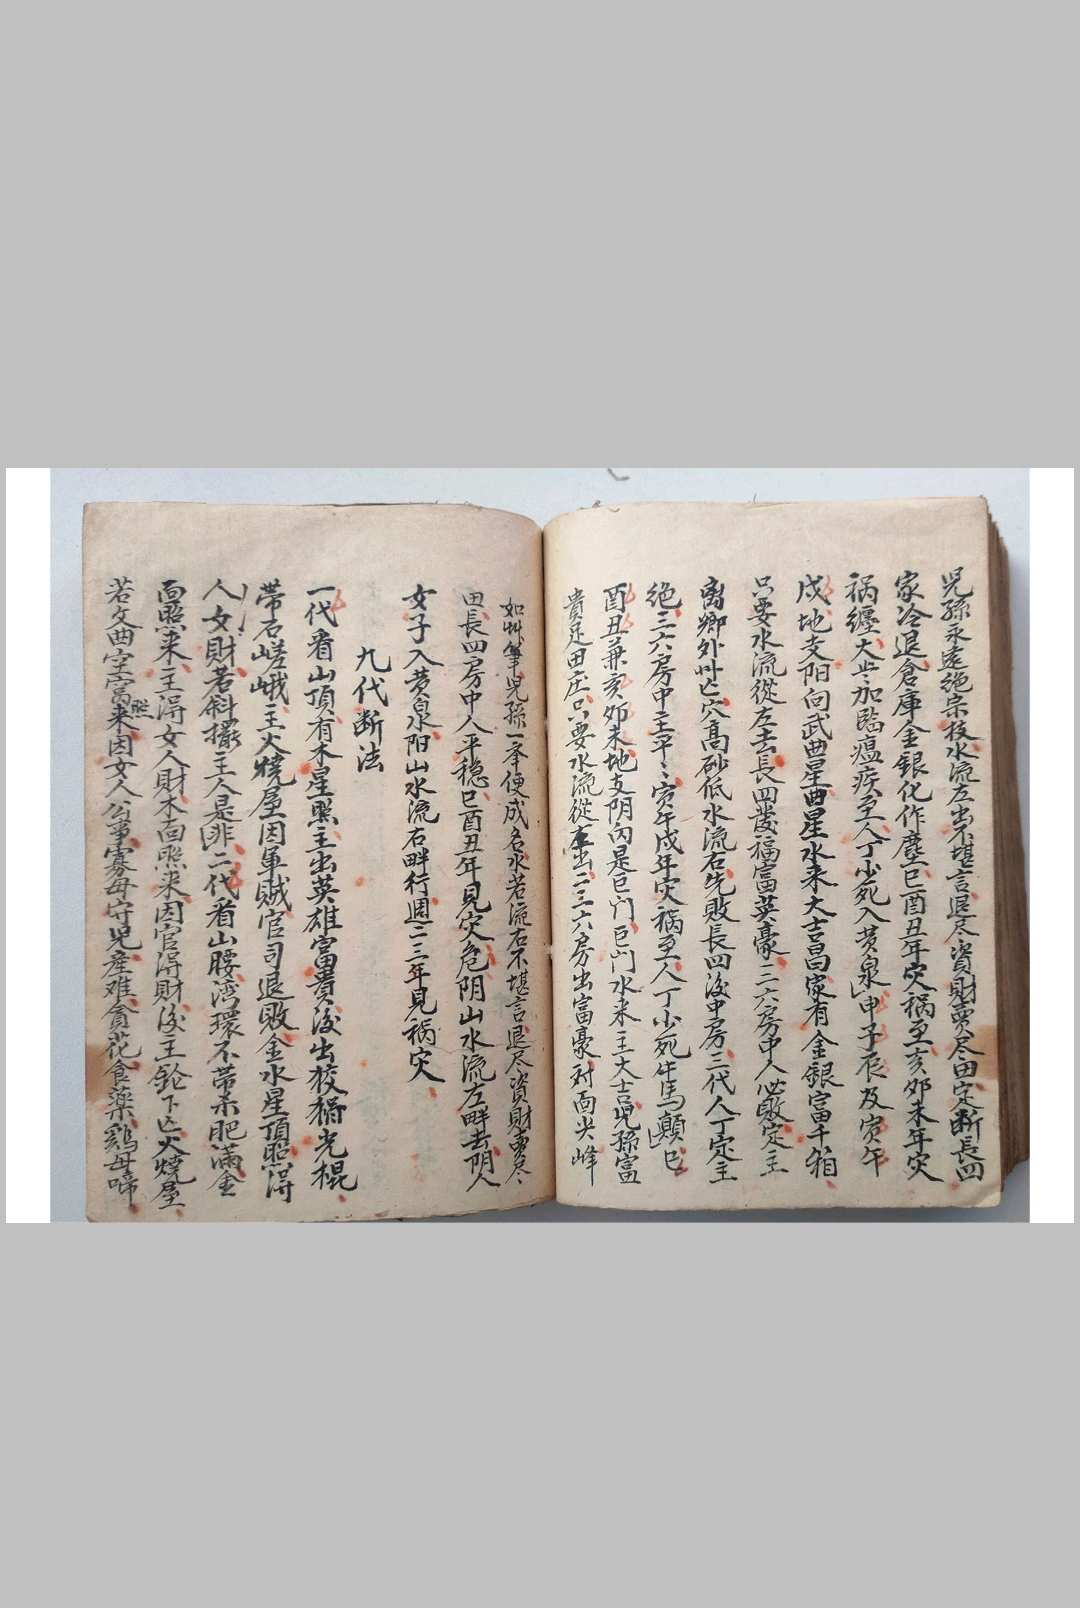 児孫永遠絶宗枝水流左出不堪言退尽資財賣尽田定断長四
家冷退倉庫金銀化作塵巳酉丑年灾禍至亥夘未年灾
祸纏大出加臨瘟疾至人丁少死入黄泉申子辰及寅午
戌地支阳向武曲星曲星水来大吉昌家有金銀富千箱
只要水流從左去長四發福富英豪二六房中人必敗定主
离郷外州亡穴高砂低水流右先敗長四後中房三代人丁定主
绝三六房中主平〻寅午戌年灾祸至人丁少死牛馬顛巳
酉丑兼亥夘未地支阴向是巨门巨门水来主大吉児孫富
貴足田庄只要水流從左出二三六房出富豪対面尖峰
如卅筆児孫一李便成名水若流右不堪言退尽資財賣尽
田長四房中人平穏巳酉丑年見灾危阴山水流左畔去阴人
女子入黄泉阳山水流右畔行週二三年見祸灾
九代断法
一代看山頂有木星照主出英雄富貴後出狡猾光棍
帶石嵯峨主火燒屋因軍賊官司退敗金水星頂照淂
人女財若斜擺主人是非二代看山腰湾環不帶杀肥满金
面照来主淂女人財木面照来因官淂財後主軨下亡火燒屋
若文曲字當照来因女人公事寡母守児産难貪花食藥鷄母啼